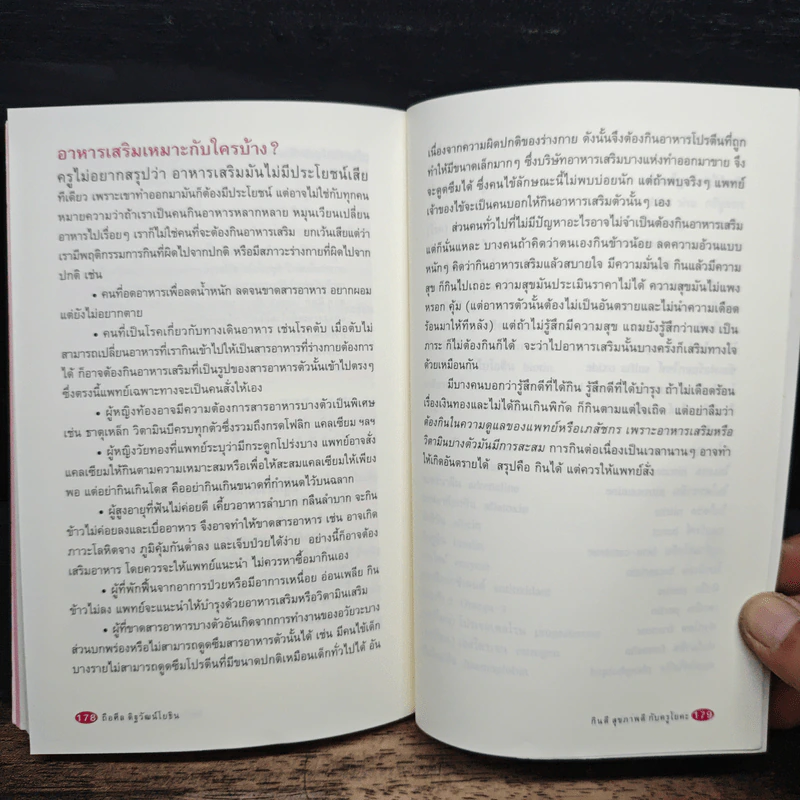 อาหารเสริมเหมาะกับใครบ้าง ?
ครูไม่อยากสรุปว่า อาหารเสริมมันไม่มีประโยชน์เสีย
ทีเดียว เพราะเขาทำออกมามันก็ต้องมีประโยชน์ แต่อาจไม่ใช่กับทุกคน
หมายความว่าถ้าเราเป็นคนกินอาหารหลากหลาย หมุนเวียนเปลี่ยน
อาหารไปเรื่อยๆ เราก็ไม่ใช่คนที่จะต้องกินอาหารเสริม ยกเว้นเสียแต่ว่า
เรามีพฤติกรรมการกินที่ผิดไปจากปกติ หรือมีสภาวะร่างกายที่ผิดไปจาก
ปกติ เช่น
• คนที่อดอาหารเพื่อลดน้ำหนัก ลดจนขาดสารอาหาร อยากผอม
แต่ยังไม่อยากตาย
• คนที่เป็นโรคเกี่ยวกับทางเดินอาหาร เช่นโรคตับ เมื่อตับไม่
สามารถเปลี่ยนอาหารที่เรากินเข้าไปให้เป็นสารอาหารที่ร่างกายต้องการ
ได้ ก็อาจต้องกินอาหารเสริมที่เป็นรูปของสารอาหารตัวนั้นเข้าไปตรงๆ
ซึ่งตรงนี้แพทย์เฉพาะทางจะเป็นคนสั่งให้เอง
• ผู้หญิงท้องอาจมีความต้องการสารอาหารบางตัวเป็นพิเศษ
เช่น ธาตุเหล็ก วิตามินบีครบทุกตัวซึ่งรวมถึงกรดโฟลิก แคลเซียม ฯลฯ
• ผู้หญิงวัยทองที่แพทย์ระบุว่ามีกระดูกโปร่งบาง แพทย์อาจสั่ง
แคลเซียมให้กินตามความเหมาะสมหรือเพื่อให้สะสมแคลเซียมให้เพียง
พอ แต่อย่ากินเกินโดส คืออย่ากินเกินขนาดที่กำหนดไว้บนฉลาก
• ผู้สูงอายุที่ฟันไม่ค่อยดี เคี้ยวอาหารลำบาก กลืนลำบาก จะกิน
ข้าวไม่ค่อยลงและเบื่ออาหาร จึงอาจทำให้ขาดสารอาหาร เช่น อาจเกิด
ภาวะโลหิตจาง ภูมิคุ้มกันต่ำลง และเจ็บป่วยได้ง่าย อย่างนี้ก็อาจต้อง
เสริมอาหาร โดยควรจะให้แพทย์แนะนำ ไม่ควรหาซื้อมากินเอง
• ผู้ที่พักฟื้นจากอาการป่วยหรือมีอาการเหนื่อย อ่อนเพลีย กิน
ข้าวไม่ลง แพทย์จะแนะนำให้บำรุงด้วยอาหารเสริมหรือวิตามินเสริม
• ผู้ที่ขาดสารอาหารบางตัวอันเกิดจากการทำงานของอวัยวะบาง
ส่วนบกพร่องหรือไม่สามารถดูดซึมสารอาหารตัวนั้นได้ เช่น มีคนไข้เด็ก
บางรายไม่สามารถดูดซึมโปรตีนที่มีขนาดปกติเหมือนเด็กทั่วไปได้ อัน
178 ถือคีม ดิฐวัฒน์โยธิน
เนื่องจากความผิดปกติของร่างกาย ดังนั้นจึงต้องกินอาหารโปรตีนที่ถูก
ทำให้มีขนาดเล็กมากๆ ซึ่งบริษัทอาหารเสริมบางแห่งทำออกมาขาย จึง
จะดูดซึมได้ ซึ่งคนไข้ลักษณะนี้ไม่พบบ่อยนัก แต่ถ้าพบจริงๆ แพทย์
เจ้าของไข้จะเป็นคนบอกให้กินอาหารเสริมตัวนั้นๆ เอง
ส่วนคนทั่วไปที่ไม่มีปัญหาอะไรอาจไม่จำเป็นต้องกินอาหารเสริม
แต่ก็นั่นแหละ บางคนถ้าคิดว่าตนเองกินข้าวน้อย ลดความอ้วนแบบ
หนักๆ คิดว่ากินอาหารเสริมแล้วสบายใจ มีความมั่นใจ กินแล้วมีความ
สุข ก็กินไปเถอะ ความสุขมันประเมินราคาไม่ได้ ความสุขมันไม่แพง
หรอก คุ้ม (แต่อาหารตัวนั้นต้องไม่เป็นอันตรายและไม่นำความเดือด
ร้อนมาให้ทีหลัง) แต่ถ้าไม่รู้สึกมีความสุข แถมยังรู้สึกว่าแพง เป็น
ภาระ ก็ไม่ต้องกินก็ได้ จะว่าไปอาหารเสริมนั้นบางครั้งก็เสริมทางใจ
ด้วยเหมือนกัน
มีบางคนบอกว่ารู้สึกดีที่ได้กิน รู้สึกดีที่ได้บำรุง ถ้าไม่เดือดร้อน
เรื่องเงินทองและไม่ได้กินเกินพิกัด ก็กินตามแต่ใจเถิด แต่อย่าลืมว่า
ต้องกินในความดูแลของแพทย์หรือเภสัชกร เพราะอาหารเสริมหรือ
วิตามินบางตัวมันมีการสะสม การกินต่อเนื่องเป็นเวลานานๆ อาจทำ
ให้เกิดอันตรายได้ สรุปคือ กินได้ แต่ควรให้แพทย์สั่ง
กินดี สุขภาพดี กับครูโยคะ 179